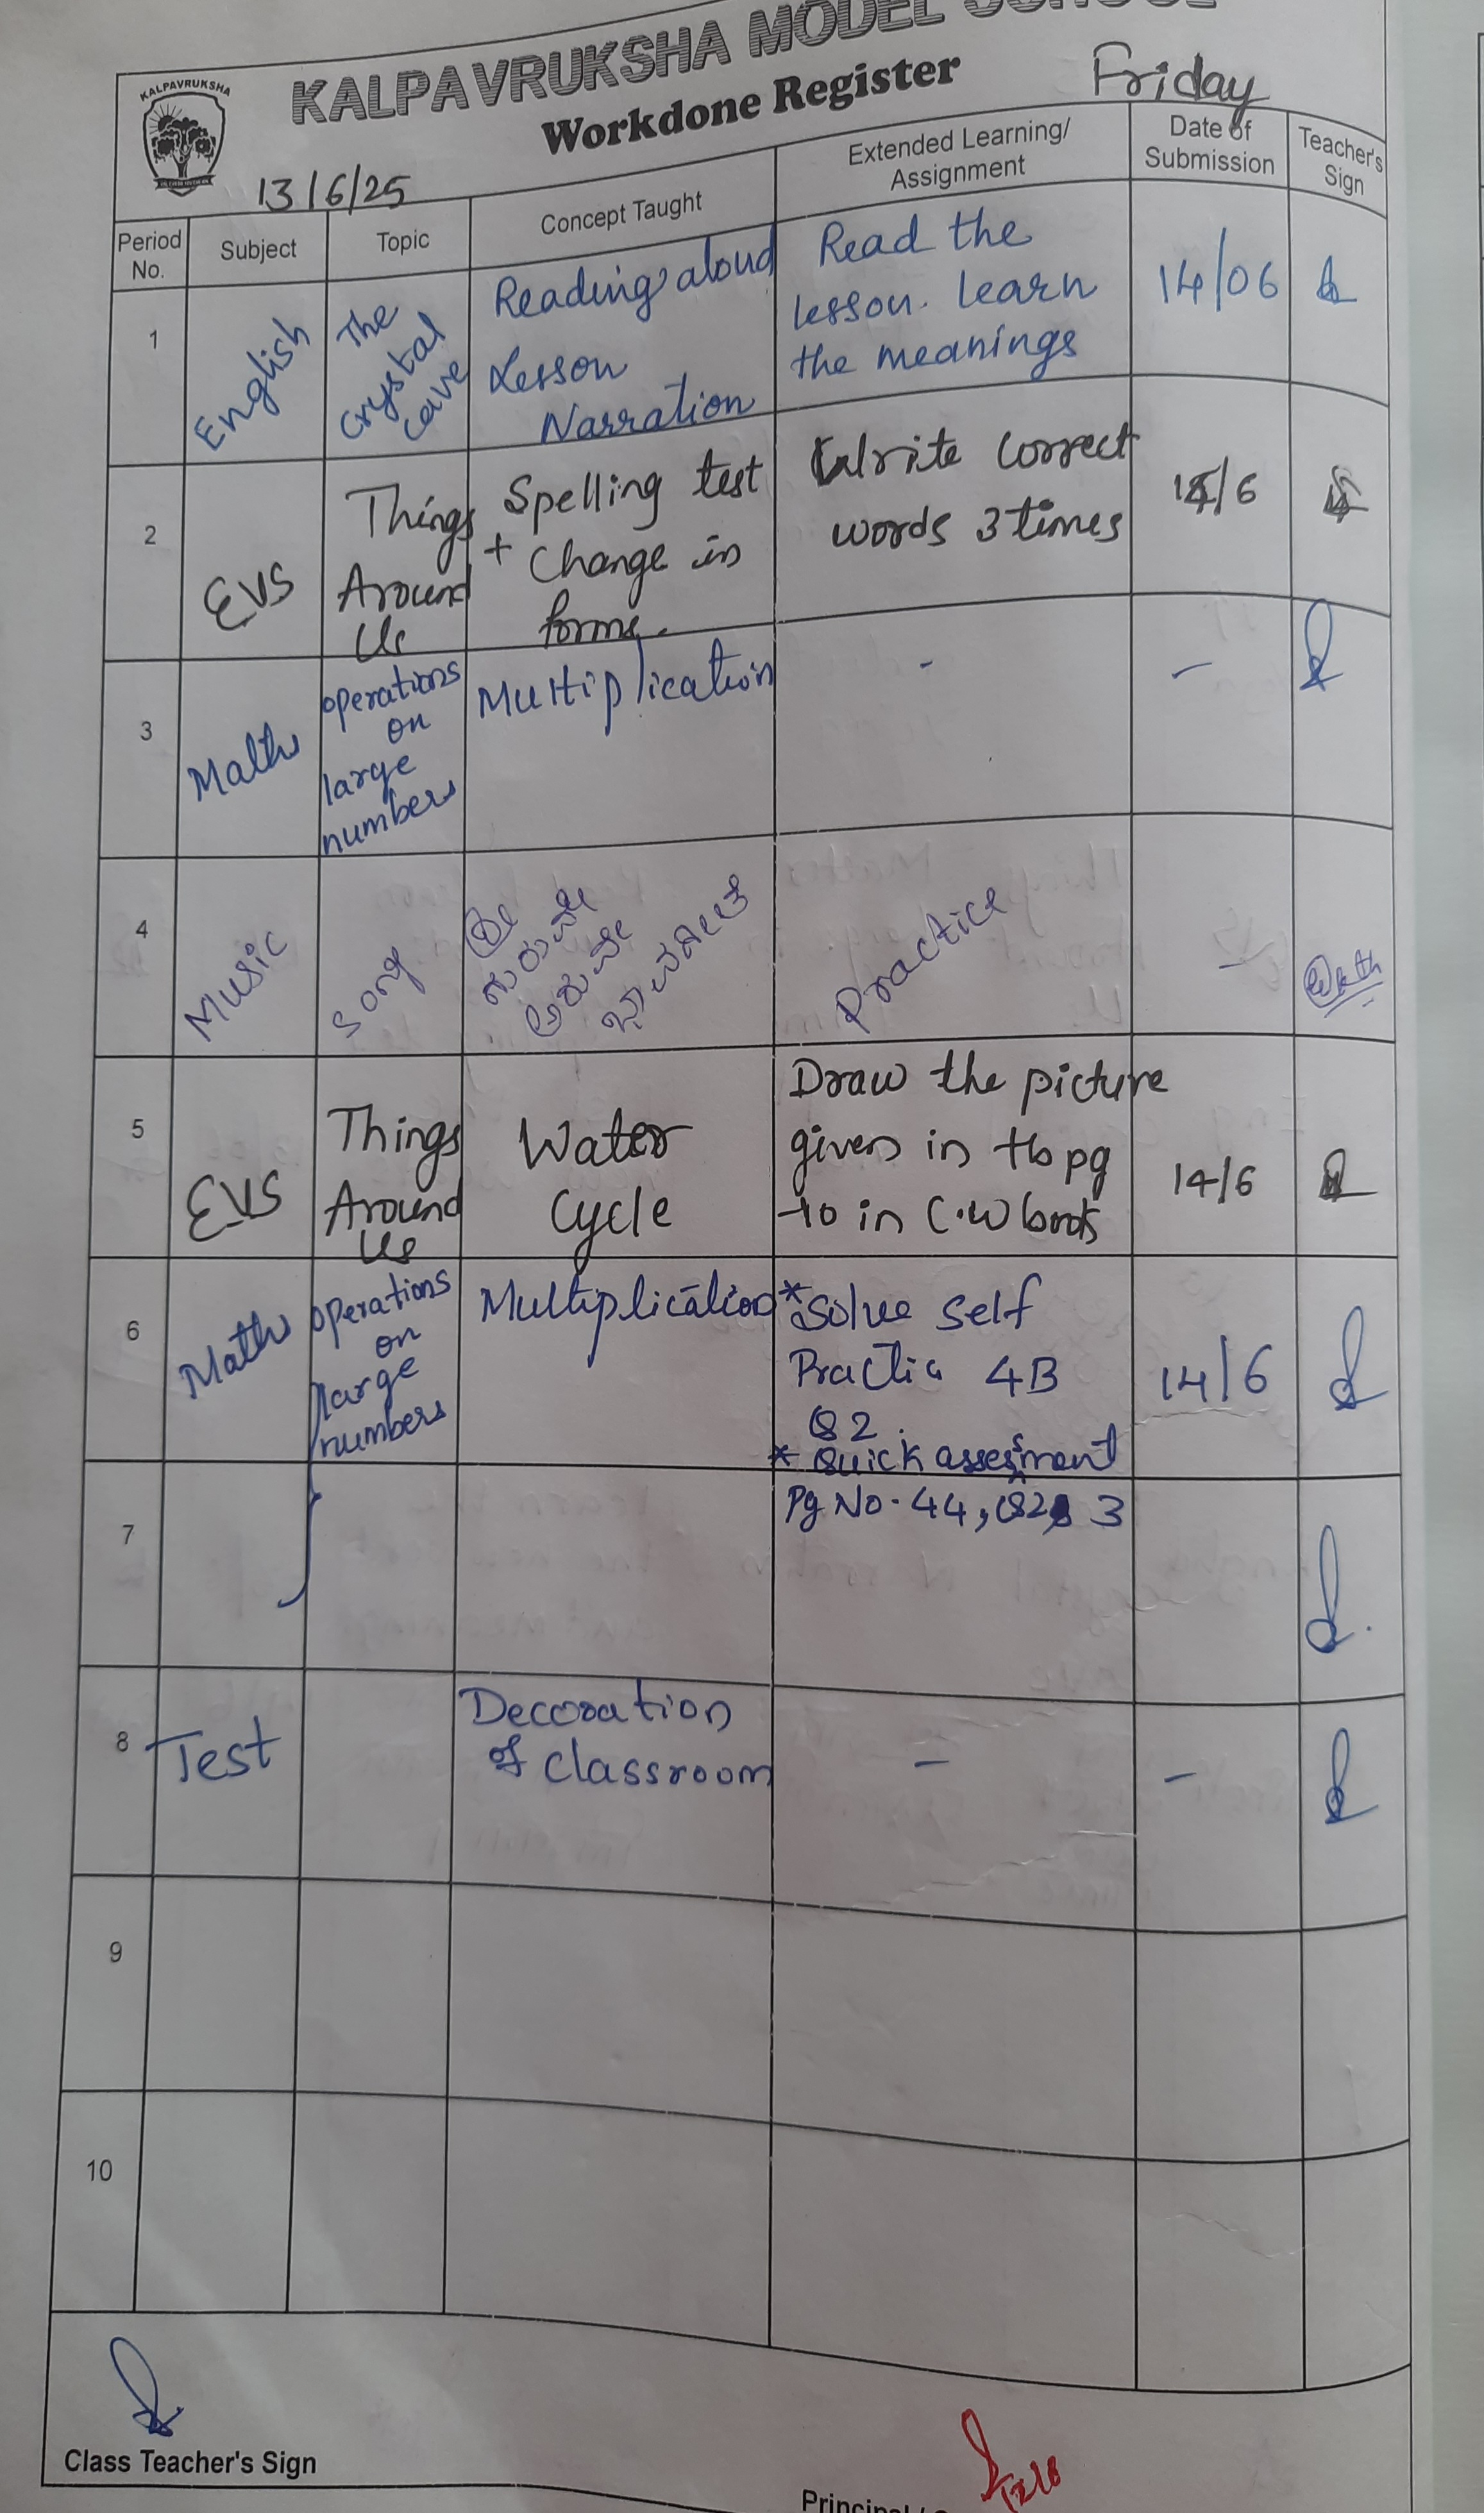 KALPAVRUKSHA MODEL SCHOOL
KALPAVRUKSHA
Workdone Register
Friday
13/6/25
Period No.
Subject
Topic
Concept Taught
Extended Learning/
Assignment
Date of
Submission
Teacher's
Sign
1
English
The
Crystal
Cave
Reading aloud
Lesson
Narration
Read the
lesson. learn
the meanings
14/06
2
EVS
Things
Around
Us
Spelling test
+ Change in
forms.
Write correct
words 3 times
3
Maths
operations
on
large
numbers
Multiplication
-
-
4
Music
Song
ಗುರುವೇ
Practice
-
5
EVS
Things
Around
Us
Water
Cycle
Draw the picture
given in tb pg
10 in C.W book
14/6
6
Maths
operations
on
large
numbers
Multiplication
*Solve self
Practic 4B
Q2.
* Quick assessment
Pg No. 44, Q2, 3
14/6
7
8
Test
Decoration
of classroom
-
-
9
10
Class Teacher's Sign